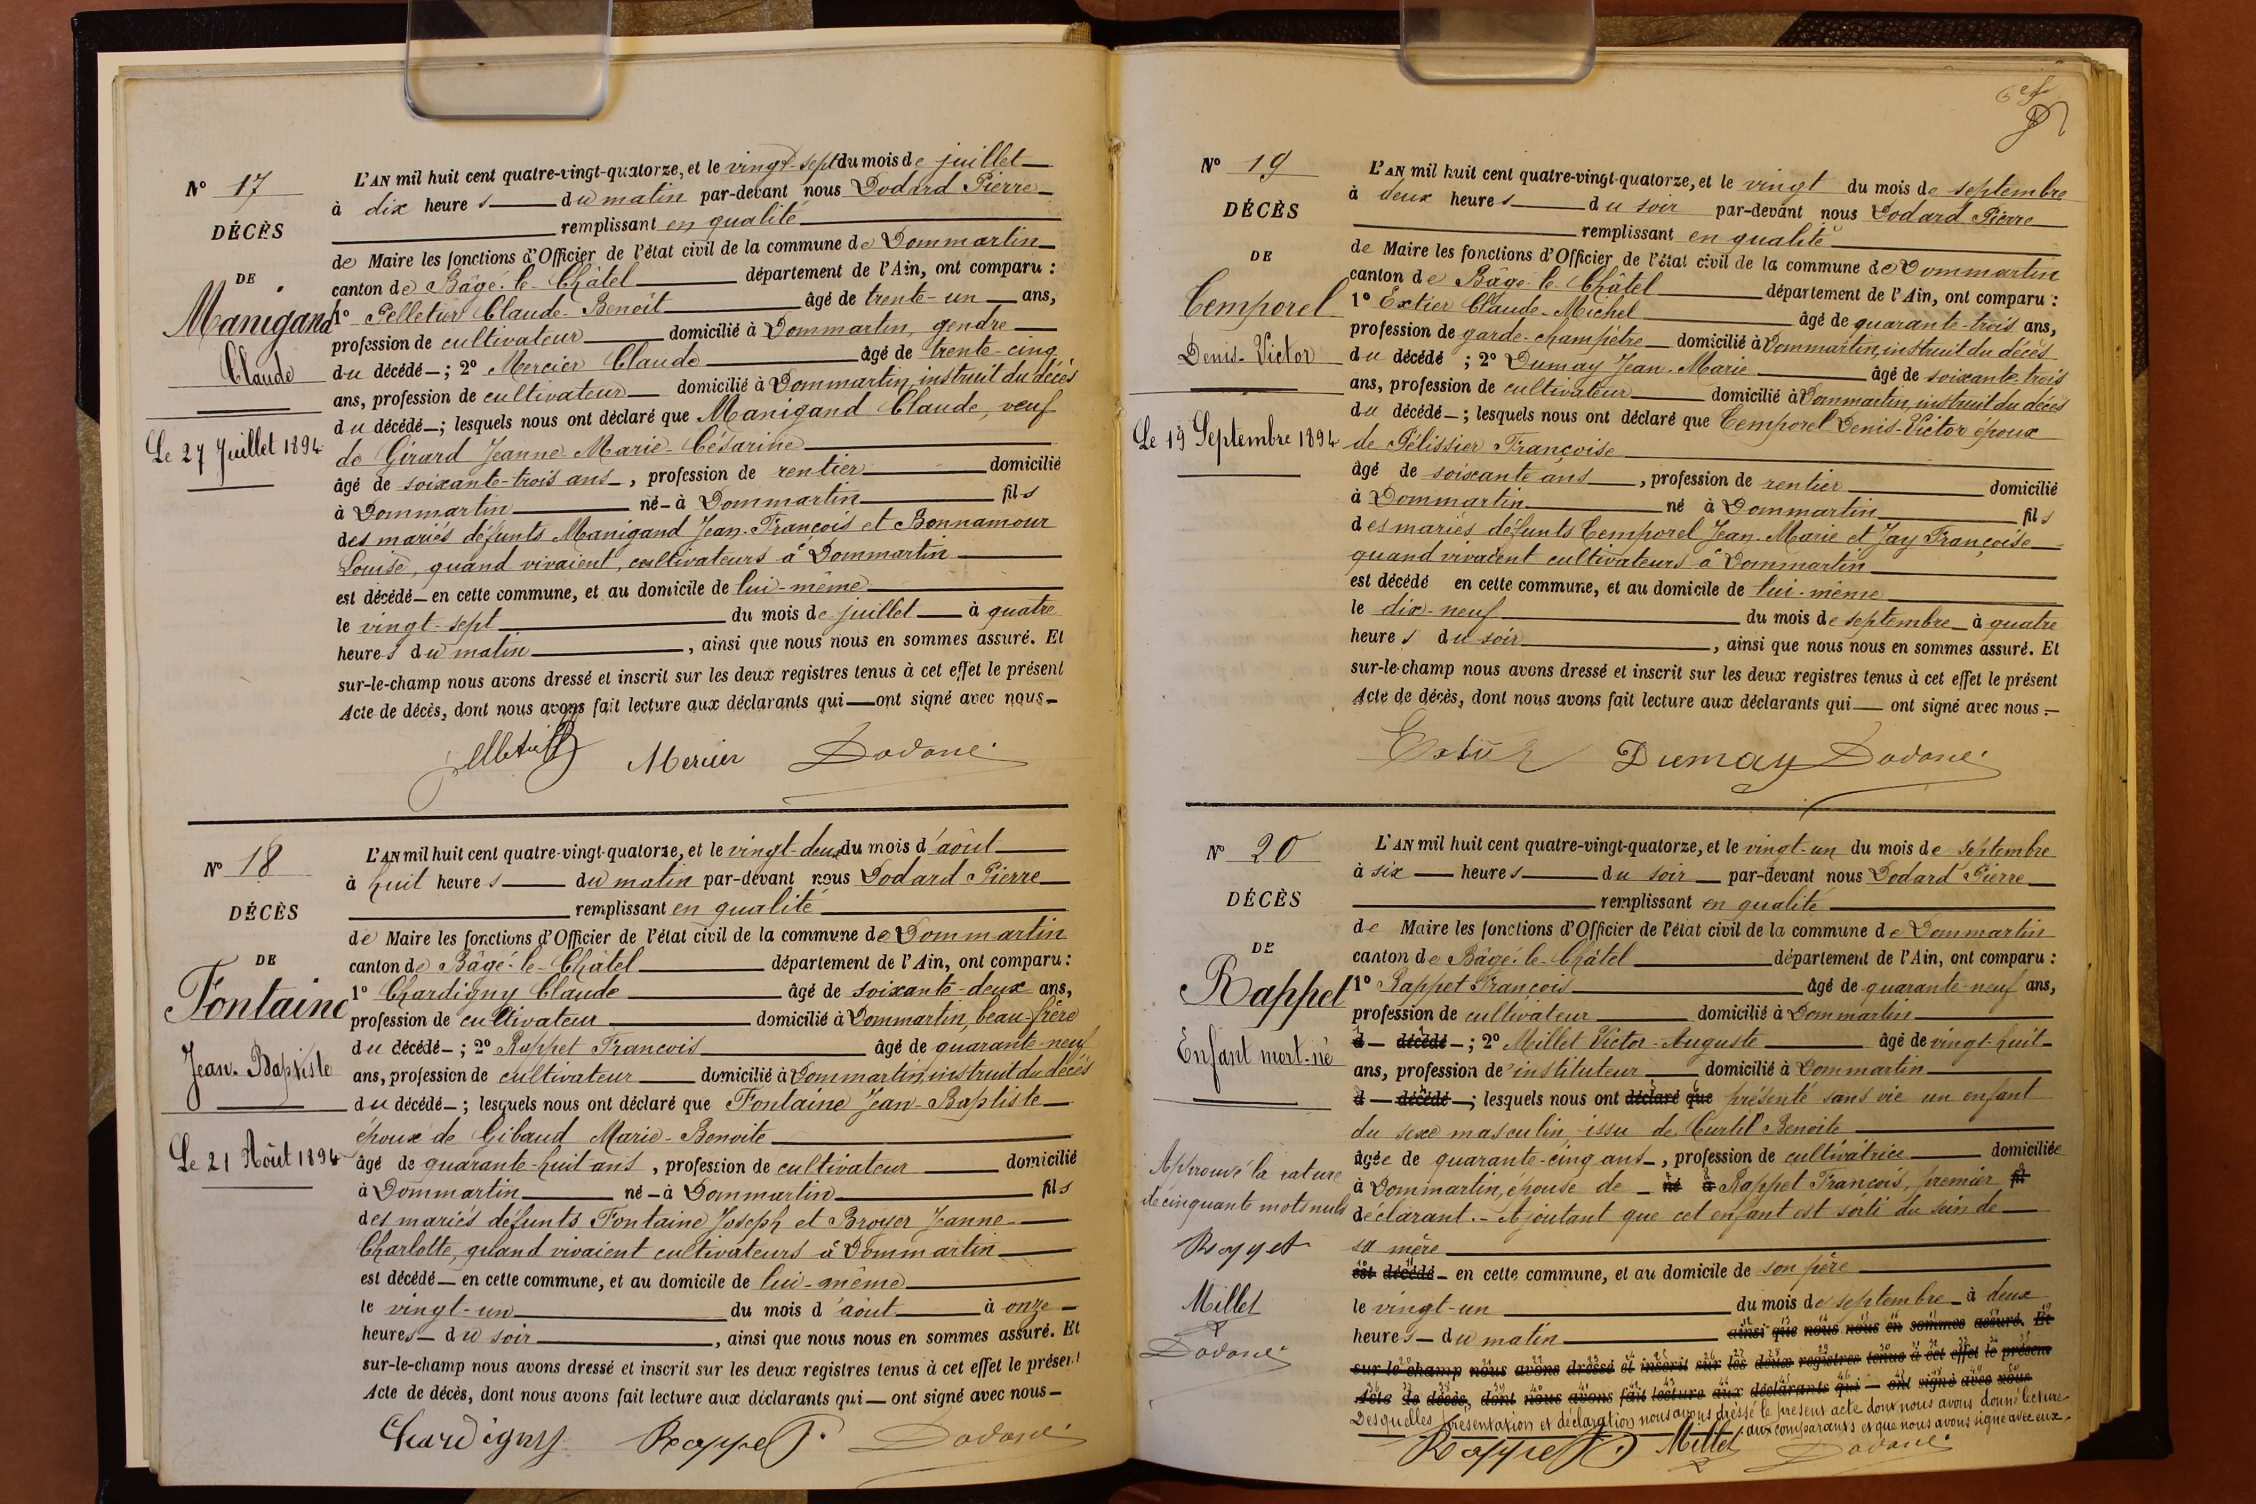 N° 17
DÉCÈS
DE
Manigand
Claude
Le 27 Juillet 1894
L'AN mil huit cent quatre-vingt-quatorze, et le vingt-sept du mois de juillet
à dix heures du matin par-devant nous Dodard Pierre
remplissant en qualité
de Maire les fonctions d'Officier de l'état civil de la commune de Dommartin
canton de Bâgé-le-Châtel département de l'Ain, ont comparu :
1° Pelletier Claude-Benoît âgé de trente-un ans,
profession de cultivateur domicilié à Dommartin, gendre
du décédé ; 2° Mercier Claude âgé de trente-cinq
ans, profession de cultivateur domicilié à Dommartin, instruit du décès
du décédé ; lesquels nous ont déclaré que Manigand Claude, veuf
de Girard Jeanne Marie-Césarine
âgé de soixante-trois ans, profession de rentier domicilié
à Dommartin né à Dommartin fils
des mariés défunts Manigand Jean-François et Bonnamour
Louise, quand vivaient, cultivateurs à Dommartin
est décédé en cette commune, et au domicile de lui-même
le vingt-sept du mois de juillet à quatre
heures du matin, ainsi que nous nous en sommes assuré. Et
sur-le-champ nous avons dressé et inscrit sur les deux registres tenus à cet effet le présent
Acte de décès, dont nous avons fait lecture aux déclarants qui ont signé avec nous
Mercier
N° 18
DÉCÈS
DE
Fontaine
Jean-Baptiste
Le 21 Août 1894
L'AN mil huit cent quatre-vingt-quatorze, et le vingt-deux du mois d'août
à huit heures du matin par-devant nous Dodard Pierre
remplissant en qualité
de Maire les fonctions d'Officier de l'état civil de la commune de Dommartin
canton de Bâgé-le-Châtel département de l'Ain, ont comparu :
1° Chardigny Claude âgé de soixante-deux ans,
profession de cultivateur domicilié à Dommartin, beau-frère
du décédé ; 2° Rappet François âgé de quarante-neuf
ans, profession de cultivateur domicilié à Dommartin, instruit du décès
du décédé ; lesquels nous ont déclaré que Fontaine Jean-Baptiste
époux de Gibaud Marie-Benoite
âgé de quarante-huit ans, profession de cultivateur domicilié
à Dommartin né à Dommartin fils
des mariés défunts Fontaine Joseph et Broyer Jeanne
Charlotte, quand vivaient cultivateurs à Dommartin
est décédé en cette commune, et au domicile de lui-même
le vingt-un du mois d'août à onze
heures du soir, ainsi que nous nous en sommes assuré. Et
sur-le-champ nous avons dressé et inscrit sur les deux registres tenus à cet effet le présent
Acte de décès, dont nous avons fait lecture aux déclarants qui ont signé avec nous
Chardigny Rappet
N° 19
DÉCÈS
DE
Temporel
Denis-Victor
Le 19 Septembre 1894
L'AN mil huit cent quatre-vingt-quatorze, et le vingt du mois de septembre
à deux heures du soir par-devant nous Dodard Pierre
remplissant en qualité
de Maire les fonctions d'Officier de l'état civil de la commune de Dommartin
canton de Bâgé-le-Châtel département de l'Ain, ont comparu :
1° Extier Claude-Michel âgé de quarante-trois ans,
profession de garde-champêtre domicilié à Dommartin, instruit du décès
du décédé ; 2° Dumay Jean-Marie âgé de soixante-trois
ans, profession de cultivateur domicilié à Dommartin, instruit du décès
du décédé ; lesquels nous ont déclaré que Temporel Denis-Victor époux
de Pélissier Françoise
âgé de soixante ans, profession de rentier domicilié
à Dommartin né à Dommartin fils
des mariés défunts Temporel Jean-Marie et Jay Françoise
quand vivaient cultivateurs à Dommartin
est décédé en cette commune, et au domicile de lui-même
le dix-neuf du mois de septembre à quatre
heures du soir, ainsi que nous nous en sommes assuré. Et
sur-le-champ nous avons dressé et inscrit sur les deux registres tenus à cet effet le présent
Acte de décès, dont nous avons fait lecture aux déclarants qui ont signé avec nous
Dumay
N° 20
DÉCÈS
DE
Rappet
Enfant mort-né
Approuvé la rature
de cinquante mots nuls
Rappet
Millet
L'AN mil huit cent quatre-vingt-quatorze, et le vingt-un du mois de septembre
à six heures du soir par-devant nous Dodard Pierre
remplissant en qualité
de Maire les fonctions d'Officier de l'état civil de la commune de Dommartin
canton de Bâgé-le-Châtel département de l'Ain, ont comparu :
1° Rappet François âgé de quarante-neuf ans,
profession de cultivateur domicilié à Dommartin
d décédé ; 2° Millet Victor-Auguste âgé de vingt-huit
ans, profession de instituteur domicilié à Dommartin
d décédé ; lesquels nous ont déclaré que présenté sans vie un enfant
du sexe masculin, issu de Curtil Benoite
âgée de quarante-cinq ans, profession de cultivatrice domiciliée
à Dommartin, épouse de né à Rappet François, premier fil
déclarant. - Ajoutant que cet enfant est sorti du sein de
sa mère
est décédé en cette commune, et au domicile de son père
le vingt-un du mois de septembre à deux
heures du matin ainsi que nous nous en sommes assuré. Et
sur-le-champ nous avons dressé et inscrit sur les deux registres tenus à cet effet le présent
Acte de décès, dont nous avons fait lecture aux déclarants qui ont signé avec nous
Desquelles présentation et déclaration nous avons dressé le présent acte dont nous avons donné lecture
aux comparants et que nous avons signé avec eux.
Rappet Millet